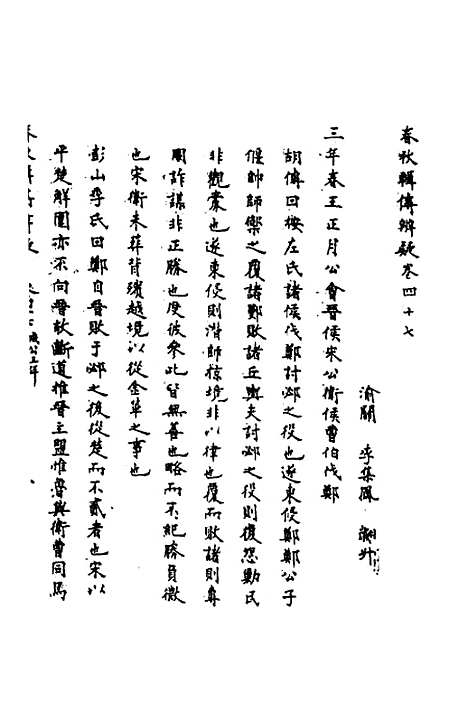 春秋輯傳辨疑卷四十七
渝關 李集鳳 翽升
三年春王正月公會晉侯宋公衛侯曹伯伐鄭
胡傳曰按左氏諸侯伐鄭討邲之役也遂東侵鄭鄭公子
偃帥師禦之覆諸鄤敗諸丘輿夫討邲之役則復怨勤民
非觀釁也遂東侵則潛師掠境非以律也覆而敗諸則專
用詐謀非正勝也度彼參此皆無善也略而不紀勝負微
也宋衛未葬背殯越境以從金革之事也
彭山季氏曰鄭自晉敗于邲之後從楚而不貳者也宋以
平楚解圍亦不向晉故斷道惟晉主盟惟魯與衛曹同焉
春秋輯傳辨疑 卷四十七 成公三年